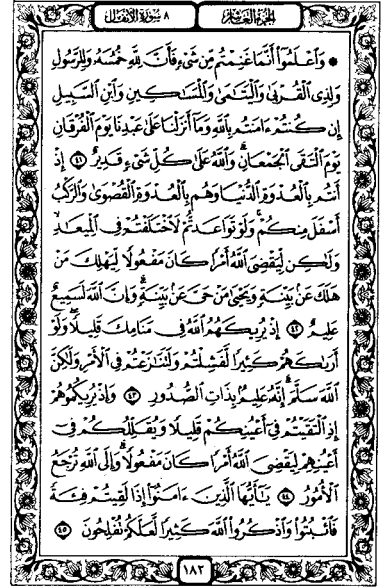 الجزء العاشر
٨ سورة الأنفال
۞ وَاعْلَمُوا أَنَّمَا غَنِمْتُم مِّن شَيْءٍ فَأَنَّ لِلَّهِ خُمُسَهُ وَلِلرَّسُولِ
وَلِذِي الْقُرْبَىٰ وَالْيَتَامَىٰ وَالْمَسَاكِينِ وَابْنِ السَّبِيلِ
إِن كُنتُمْ ءَامَنتُم بِاللَّهِ وَمَا أَنزَلْنَا عَلَىٰ عَبْدِنَا يَوْمَ الْفُرْقَانِ
يَوْمَ الْتَقَى الْجَمْعَانِ وَاللَّهُ عَلَىٰ كُلِّ شَيْءٍ قَدِيرٌ ٤١ إِذْ
أَنتُم بِالْعُدْوَةِ الدُّنْيَا وَهُم بِالْعُدْوَةِ الْقُصْوَىٰ وَالرَّكْبُ
أَسْفَلَ مِنكُمْ وَلَوْ تَوَاعَدتُّمْ لَاخْتَلَفْتُمْ فِي الْمِيعَادِ
وَلَٰكِن لِّيَقْضِيَ اللَّهُ أَمْرًا كَانَ مَفْعُولًا لِّيَهْلِكَ مَنْ
هَلَكَ عَنۢ بَيِّنَةٍ وَيَحْيَىٰ مَنْ حَيَّ عَنۢ بَيِّنَةٍ وَإِنَّ اللَّهَ لَسَمِيعٌ
عَلِيمٌ ٤٢ إِذْ يُرِيكَهُمُ اللَّهُ فِي مَنَامِكَ قَلِيلًا وَلَوْ
أَرَاكَهُمْ كَثِيرًا لَّفَشِلْتُمْ وَلَتَنَازَعْتُمْ فِي الْأَمْرِ وَلَٰكِنَّ
اللَّهَ سَلَّمَ إِنَّهُ عَلِيمٌ بِذَاتِ الصُّدُورِ ٤٣ وَإِذْ يُرِيكُمُوهُمْ
إِذِ الْتَقَيْتُمْ فِي أَعْيُنِكُمْ قَلِيلًا وَيُقَلِّلُكُمْ فِي
أَعْيُنِهِمْ لِيَقْضِيَ اللَّهُ أَمْرًا كَانَ مَفْعُولًا وَإِلَى اللَّهِ تُرْجَعُ
الْأُمُورُ ٤٤ يَا أَيُّهَا الَّذِينَ ءَامَنُوا إِذَا لَقِيتُمْ فِئَةً
فَاثْبُتُوا وَاذْكُرُوا اللَّهَ كَثِيرًا لَّعَلَّكُمْ تُفْلِحُونَ ٤٥
١٨٢